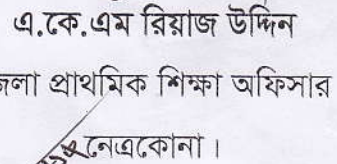 এ.কে.এম রিয়াজ উদ্দিন
জলা প্রাথমিক শিক্ষা অফিসার
নেত্রকোনা।